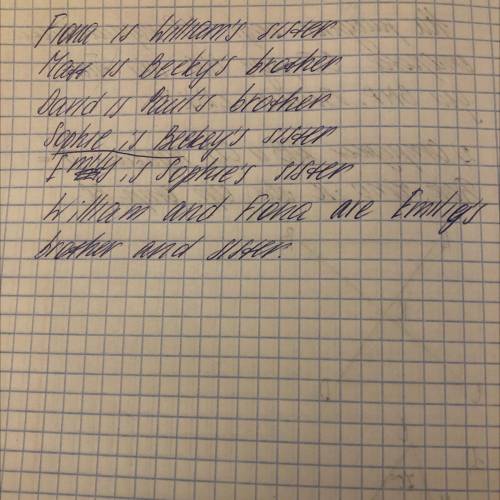 Fiona is William's sister
Matt is Becky's brother
David is Paul's brother
Sophie is Beckey's sister
Emily is Sophie's sister
William and Fiona are Emiliy's
brother and sister.